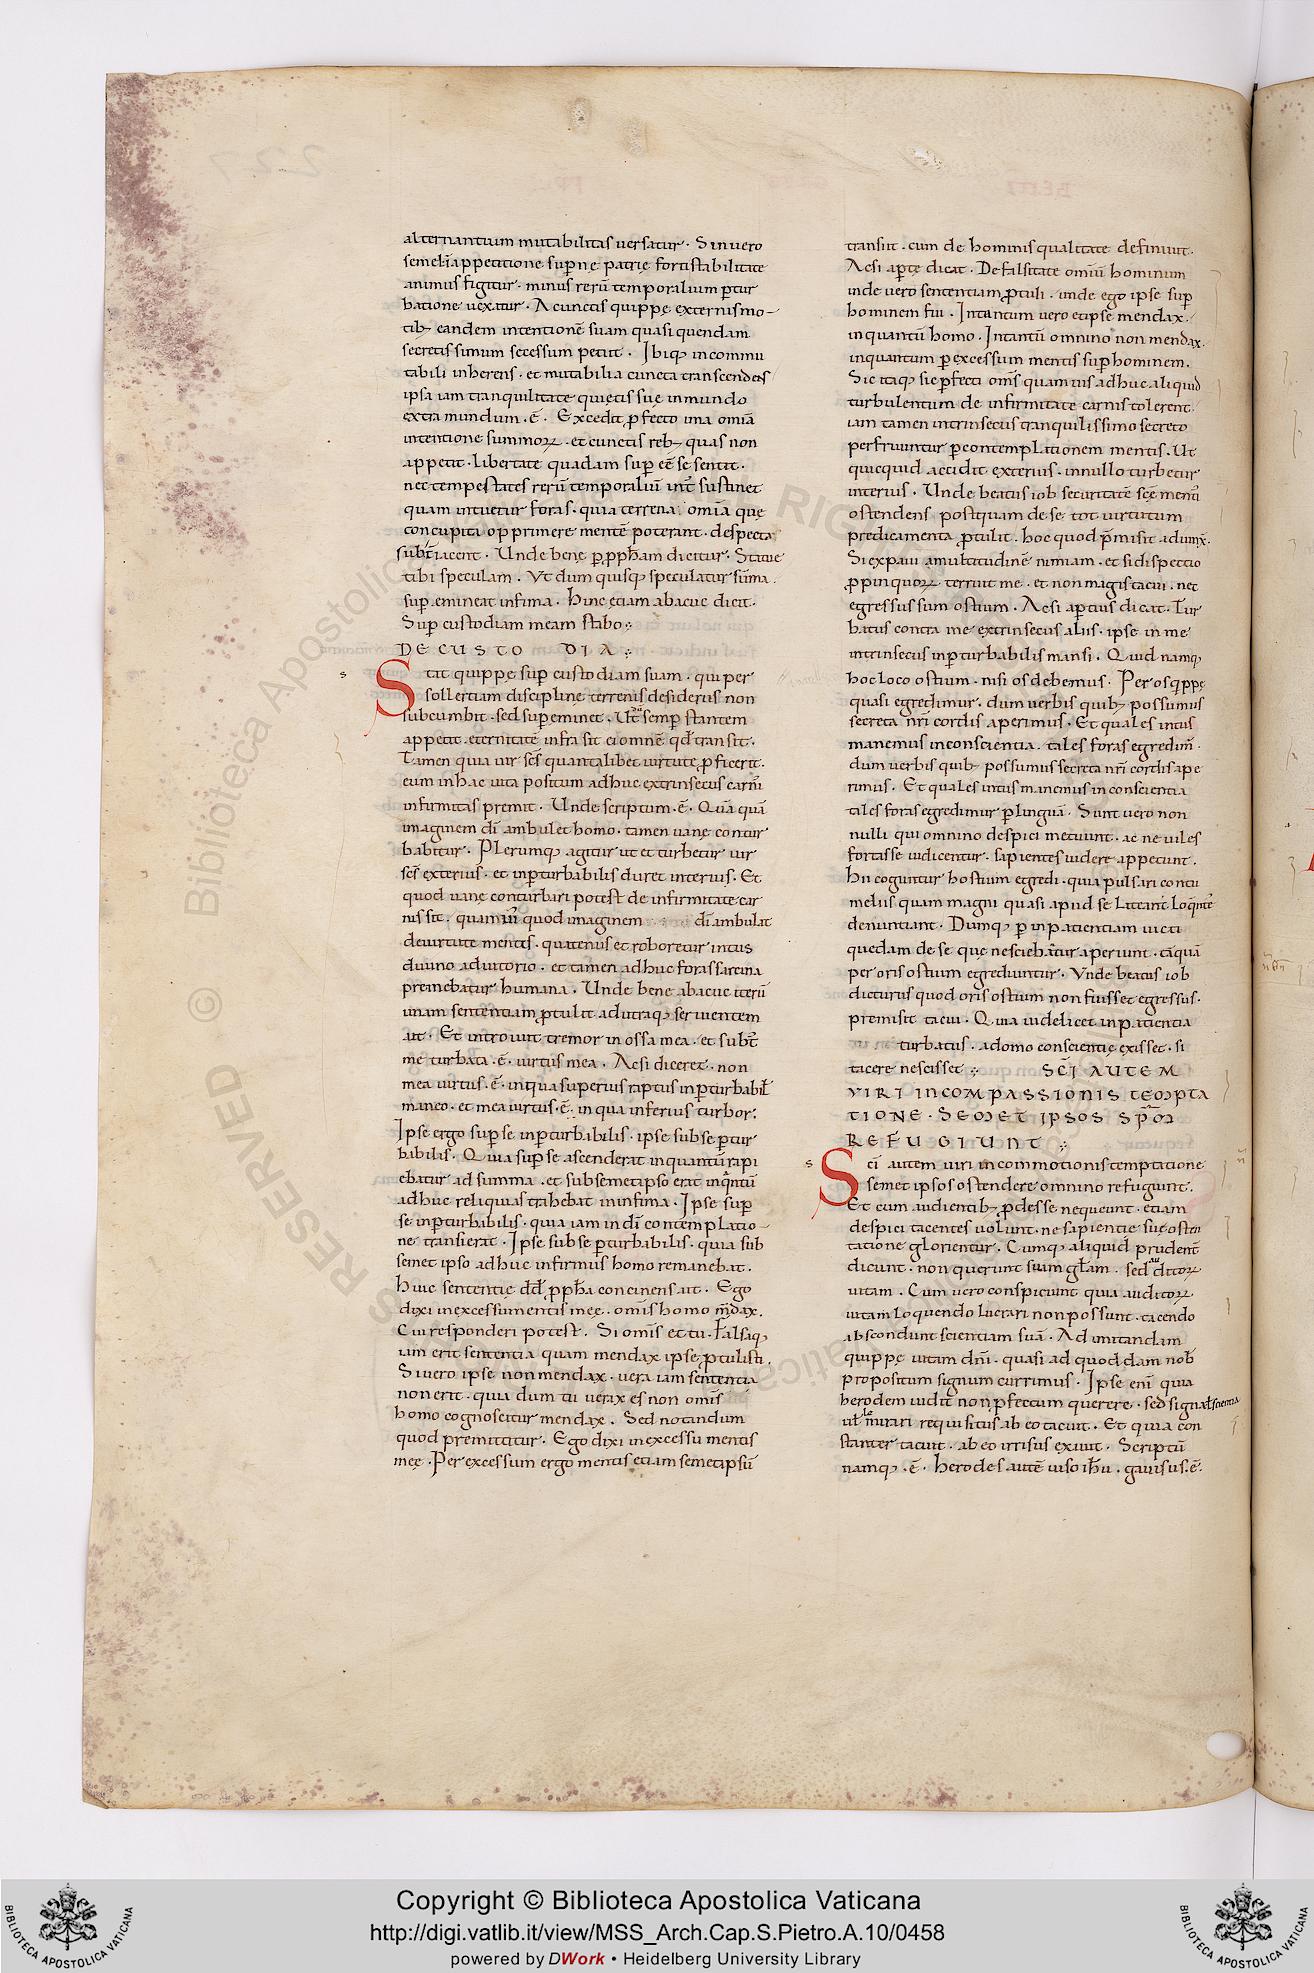 alternantium mutabilitas uersatur. Sin uero
semel in appetitione sup̄nę patrię forti stabilitate
animus figitur. minus rerū temporalium p̄tur
batione uexatur. A cunctis quippę externis mo-
tib; eandem intentionē suam quasi quendam
secretissimum secessum petit. Ibiq; incommu
tabili inherens. et mutabilia cuncta transcendens
ipsa iam tranquilitate quietis suę in mundo
extra mundum .ē. Excedit p̄fecto ima omīa
intentione summoꝝ. et cunctis reb; quas non
appetit. libertate quadam sup̄ eē se sentit.
nec tempestates rerū temporaliū int̄ sustinet
quam intuetur foras. quia terrena omīa quę
concupita opprimere mentē poterant. despecta
subt̄iacent. Unde benę p̄ pp̄h̄am dicitur. Statue
tibi speculam. Vt dum quisq; speculatur sūma.
sup̄emineat infima. Hinc etiam abacuc dicit.
Sup̄ custodiam meam stabo
DE CUSTO DIA
Stit quippę sup̄ custodiam suam. qui per
sollertiam disciplinę terrenis desideriis non
subcumbit. sed sup̄eminet. Ut semp̄ stantem
appetit eternitatē infra sit ei omnē qd̄ transit.
Tamen quia uir sc̄s quantalibet uirtute p̄ficerit.
eum in hac uita positum adhuc extrinsecus carnis
infirmitas premit. Unde scriptum .ē. Quā quā
imaginem dī ambulet homo. tamen uanę contur
babitur. Plerumq; agitur ut et turbetur uir
sc̄s exterius. et inp̄turbabilis duret interius. Et
quod uanę conturbari potest de infirmitate car
nis sit. quod imaginem dī ambulat
de uirtute mentis. quatenus et roboretur intus
diuino adiutorio. et tamen adhuc foras sarcina
premebatur humana. Unde bene abacuc iterū
unam sententiam p̄tulit ad utraq; seruientem
ait. Et introiuit tremor in ossa mea. et subt̄
me turbata .ē. uirtus mea. Acsi diceret. non
mea uirtus .ē. in qua superius raptus inp̄turbabil
maneo. et mea uirtus .ē. in qua inferius turbor.
Ipse ergo sup̄ se inp̄turbabilis. ipse sub se p̄tur
babilis. Quia sup̄ se ascenderat in quantū rapi
ebatur ad summa. et sub semetipso erat inq̄ntū
adhuc reliquas trahebat in infima. Ipse sup̄
se inp̄turbabilis. quia iam in dī contemplatio-
ne transierat. Ipse sub se p̄turbabilis. quia sub
semet ipso adhuc infirmus homo remanebat.
Huic sententię dd̄ p̄ph̄a concinens ait. Ego
dixi in excessu mentis mee. omīs homo mdax.
Cui responderi potest. Si omīs et tu. Falsaq;
iam erit sententia quam mendax ipse p̄tulisti.
Si uero ipse non mendax. uera iam sententia
non erit. quia dum tu uerax es non omīs
homo cognoscitur mendax. Sed notandum
quod premittitur. Ego dixi in excessu mentis
meę. Per excessum ergo mentis etiam semetipsū
transiit. cum de hominis qualitate definiuit.
Acsi ap̄te dicat. De falsitate omiū hominum
inde uero sententiam p̄tuli. unde ego ipse sup̄
hominem fui. Intantum uero et ipse mendax.
inquantū homo. Intantū omnino non mendax.
inquantum p̄ excessum mentis sup̄ hominem.
Sic itaq; sic p̄fecti omīs quamuis adhuc aliquid
turbulentum de infirmitate carnis tolerent.
iam tamen intrinsecus tranquilissimo secreto
perfruuntur p̄ contemplationem mentis. Ut
quicquid accidit exterius. in nullo turbetur
interius. Unde beatus iob securitatē sc̄e mentis
ostendens postquam de se tot uirtutum
predicamenta p̄tulit. hoc quod p̄misit adiunx.
Si expaui a multitudinē nimiam. et si dispectio
p̄pinquoꝝ terruit me. et non magis tacui. nec
egressus sum ostium. Acsi ap̄tius dicat. Tur
batus contra me extrinsecus aliis. ipse in me
intrinsecus inp̄turbabilis mansi. Quid namq;
hoc loco ostium. nisi os debemus. Per os q̄ippę
quasi egredimur. dum uerbis quib; possumus
secreta nr̄i cordis aperimus. Et quales intus
manemus in conscientia. tales foras egredim̄.
dum uerbis quib; possumus secreta nr̄i cordis ape
rimus. Et quales intus manemus in conscientia
tales foras egredimur p̄ linguā. Sunt uero non
nulli qui omnino despici metuunt. ac ne uiles
fortasse iudicentur. sapientes uidere appetunt.
Hii coguntur hostium egredi. quia pulsari contu
meliis quam magni quasi apud se lateant loq̄nter
denuntiant. Dumq; p̄ inpatientiam uicti
quedam de se quę nesciebātur aperiunt. tāquā
per oris ostium egrediuntur. Vnde beatus iob
dicturus quod oris ostium non fuisset egressus.
premisit tacui. Quia uidelicet inpatientia
turbatus. a domo conscientię exisset. si
tacere nescisset SC̄I AUTEM
VIRI IN COMPASSIONIS TEMPTA
TIONE. SEMET IPSOS
REFUGIUNT
Sc̄i autem uiri in commotionis temptatione
semet ipsos ostendere omnino refugiunt.
Et cum audientib; p̄desse nequeunt. etiam
despici tacentes uolunt. ne sapientię suę osten
tatione glorientur. Cumq; aliquid prudent̄
dicunt. non querunt suam gl̄am. sed auditoꝝ
uitam. Cum uero conspiciunt quia auditoꝝ
uitam loquendo lucrari non possunt. tacendo
abscondunt scientiam suā. Ad imitandam
quippę uitam dn̄i. quasi ad quoddam nob̄
propositum signum currimus. Ipse eni quia
herodem uidit non p̄fectum querere. sed signa
uł mirari requisitus ab eo tacuit. Et quia con
stanter tacuit. ab eo irrisus exiuit. Scriptū
namq; .ē. herodes autē uiso ih̄u. gauisus .ē.
Copyright © Biblioteca Apostolica Vaticana
http://digi.vatlib.it/view/MSS_Arch.Cap.S.Pietro.A.10/0458
powered by DWork • Heidelberg University Library
BIBLIOTECA APOSTOLICA VATICANA
BIBLIOTECA APOSTOLICA VATICANA